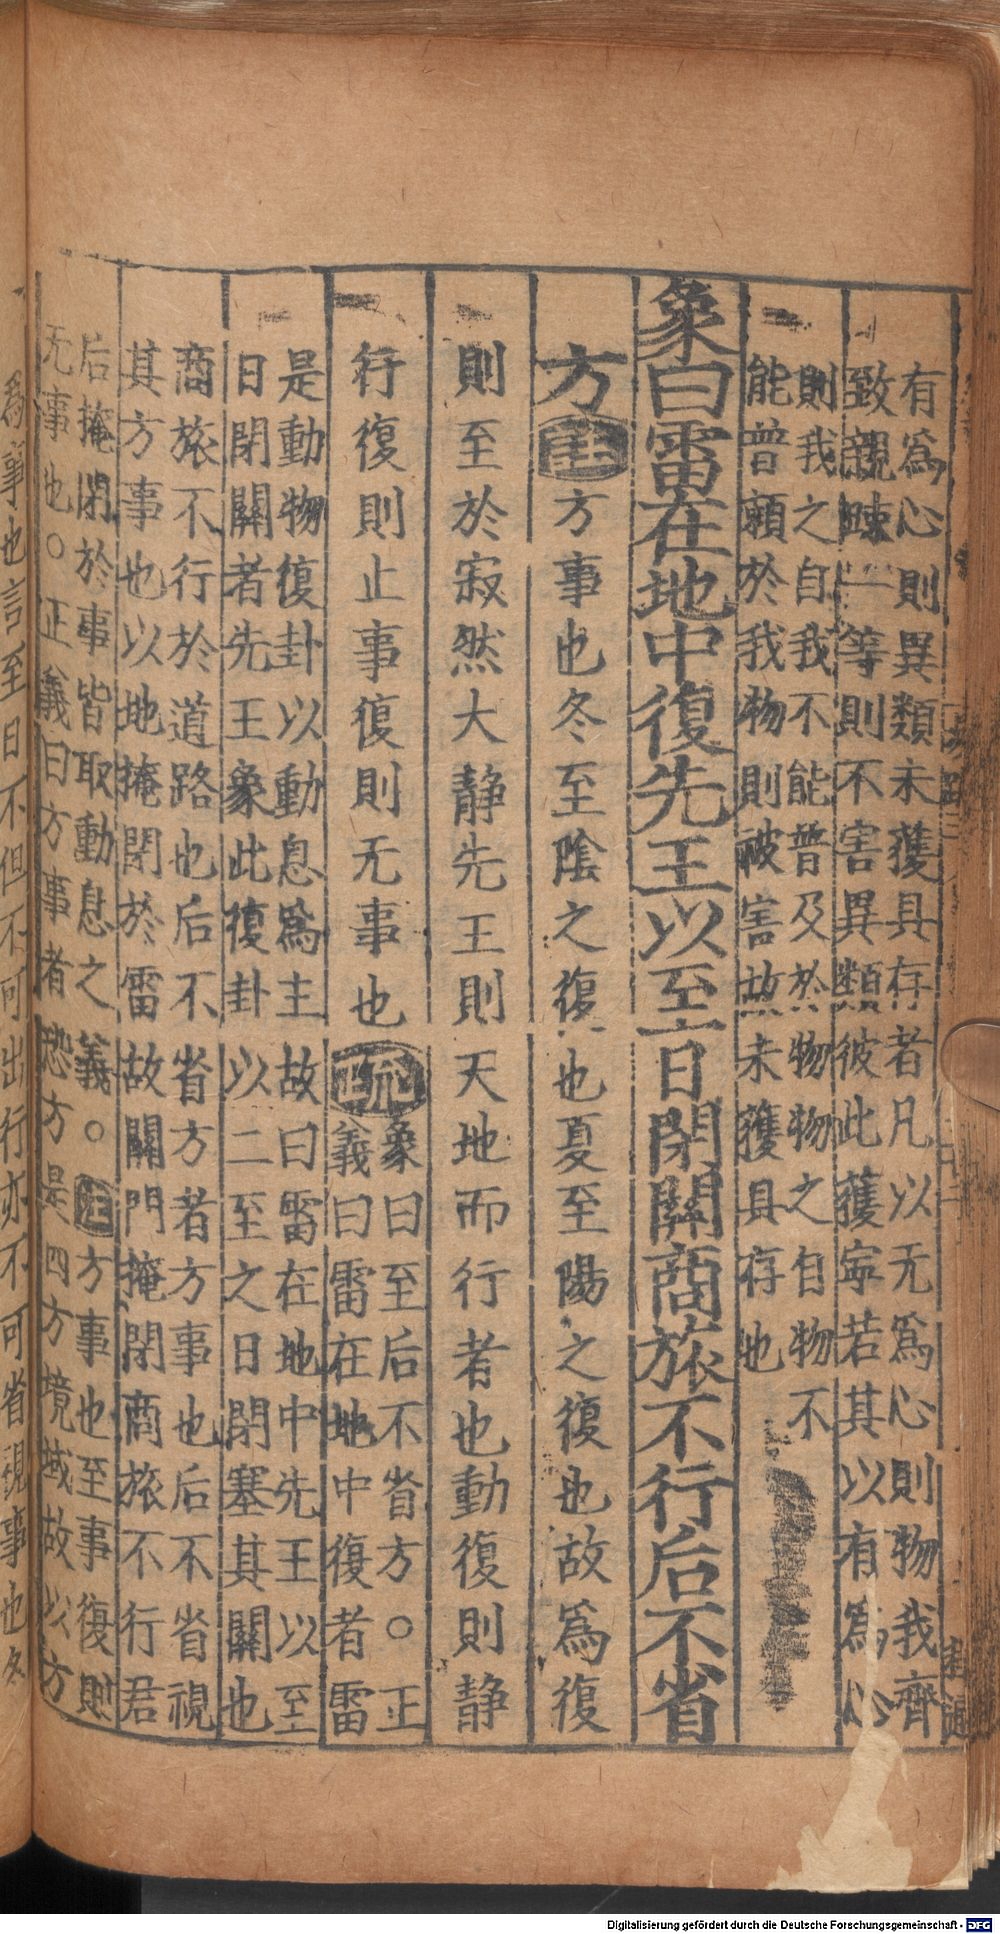 有爲心則異類未獲具存者凡以无爲心則物我齊
致親踈一等則不害異類彼此獲寧若其以有爲心
則我之自我不能普及於物物之自物不
能普賴於我物則被害故未獲具存也
象曰雷在地中復先王以至日閉關商旅不行后不省
方注方事也冬至陰之復也夏至陽之復也故爲復
則至於寂然大静先王則天地而行者也動復則静
行復則止事復則无事也疏
象曰至后不省方○正
義曰雷在地中復者雷
是動物復卦以動息爲主故曰雷在地中先王以至
日閉關者先王象此復卦以二至之日閉塞其關也
商旅不行於道路也后不省方者方事也后不省視
其方事也以地掩閉於雷故關門掩閉商旅不行君
后掩閉於事皆取動息之義○注方事也至事復則
无事也○正義曰方事者恐方是四方境域故以方
爲事也言至日不但不可出行亦不可省視事也冬
Digitalisierung gefördert durch die Deutsche Forschungsgemeinschaft - DFG